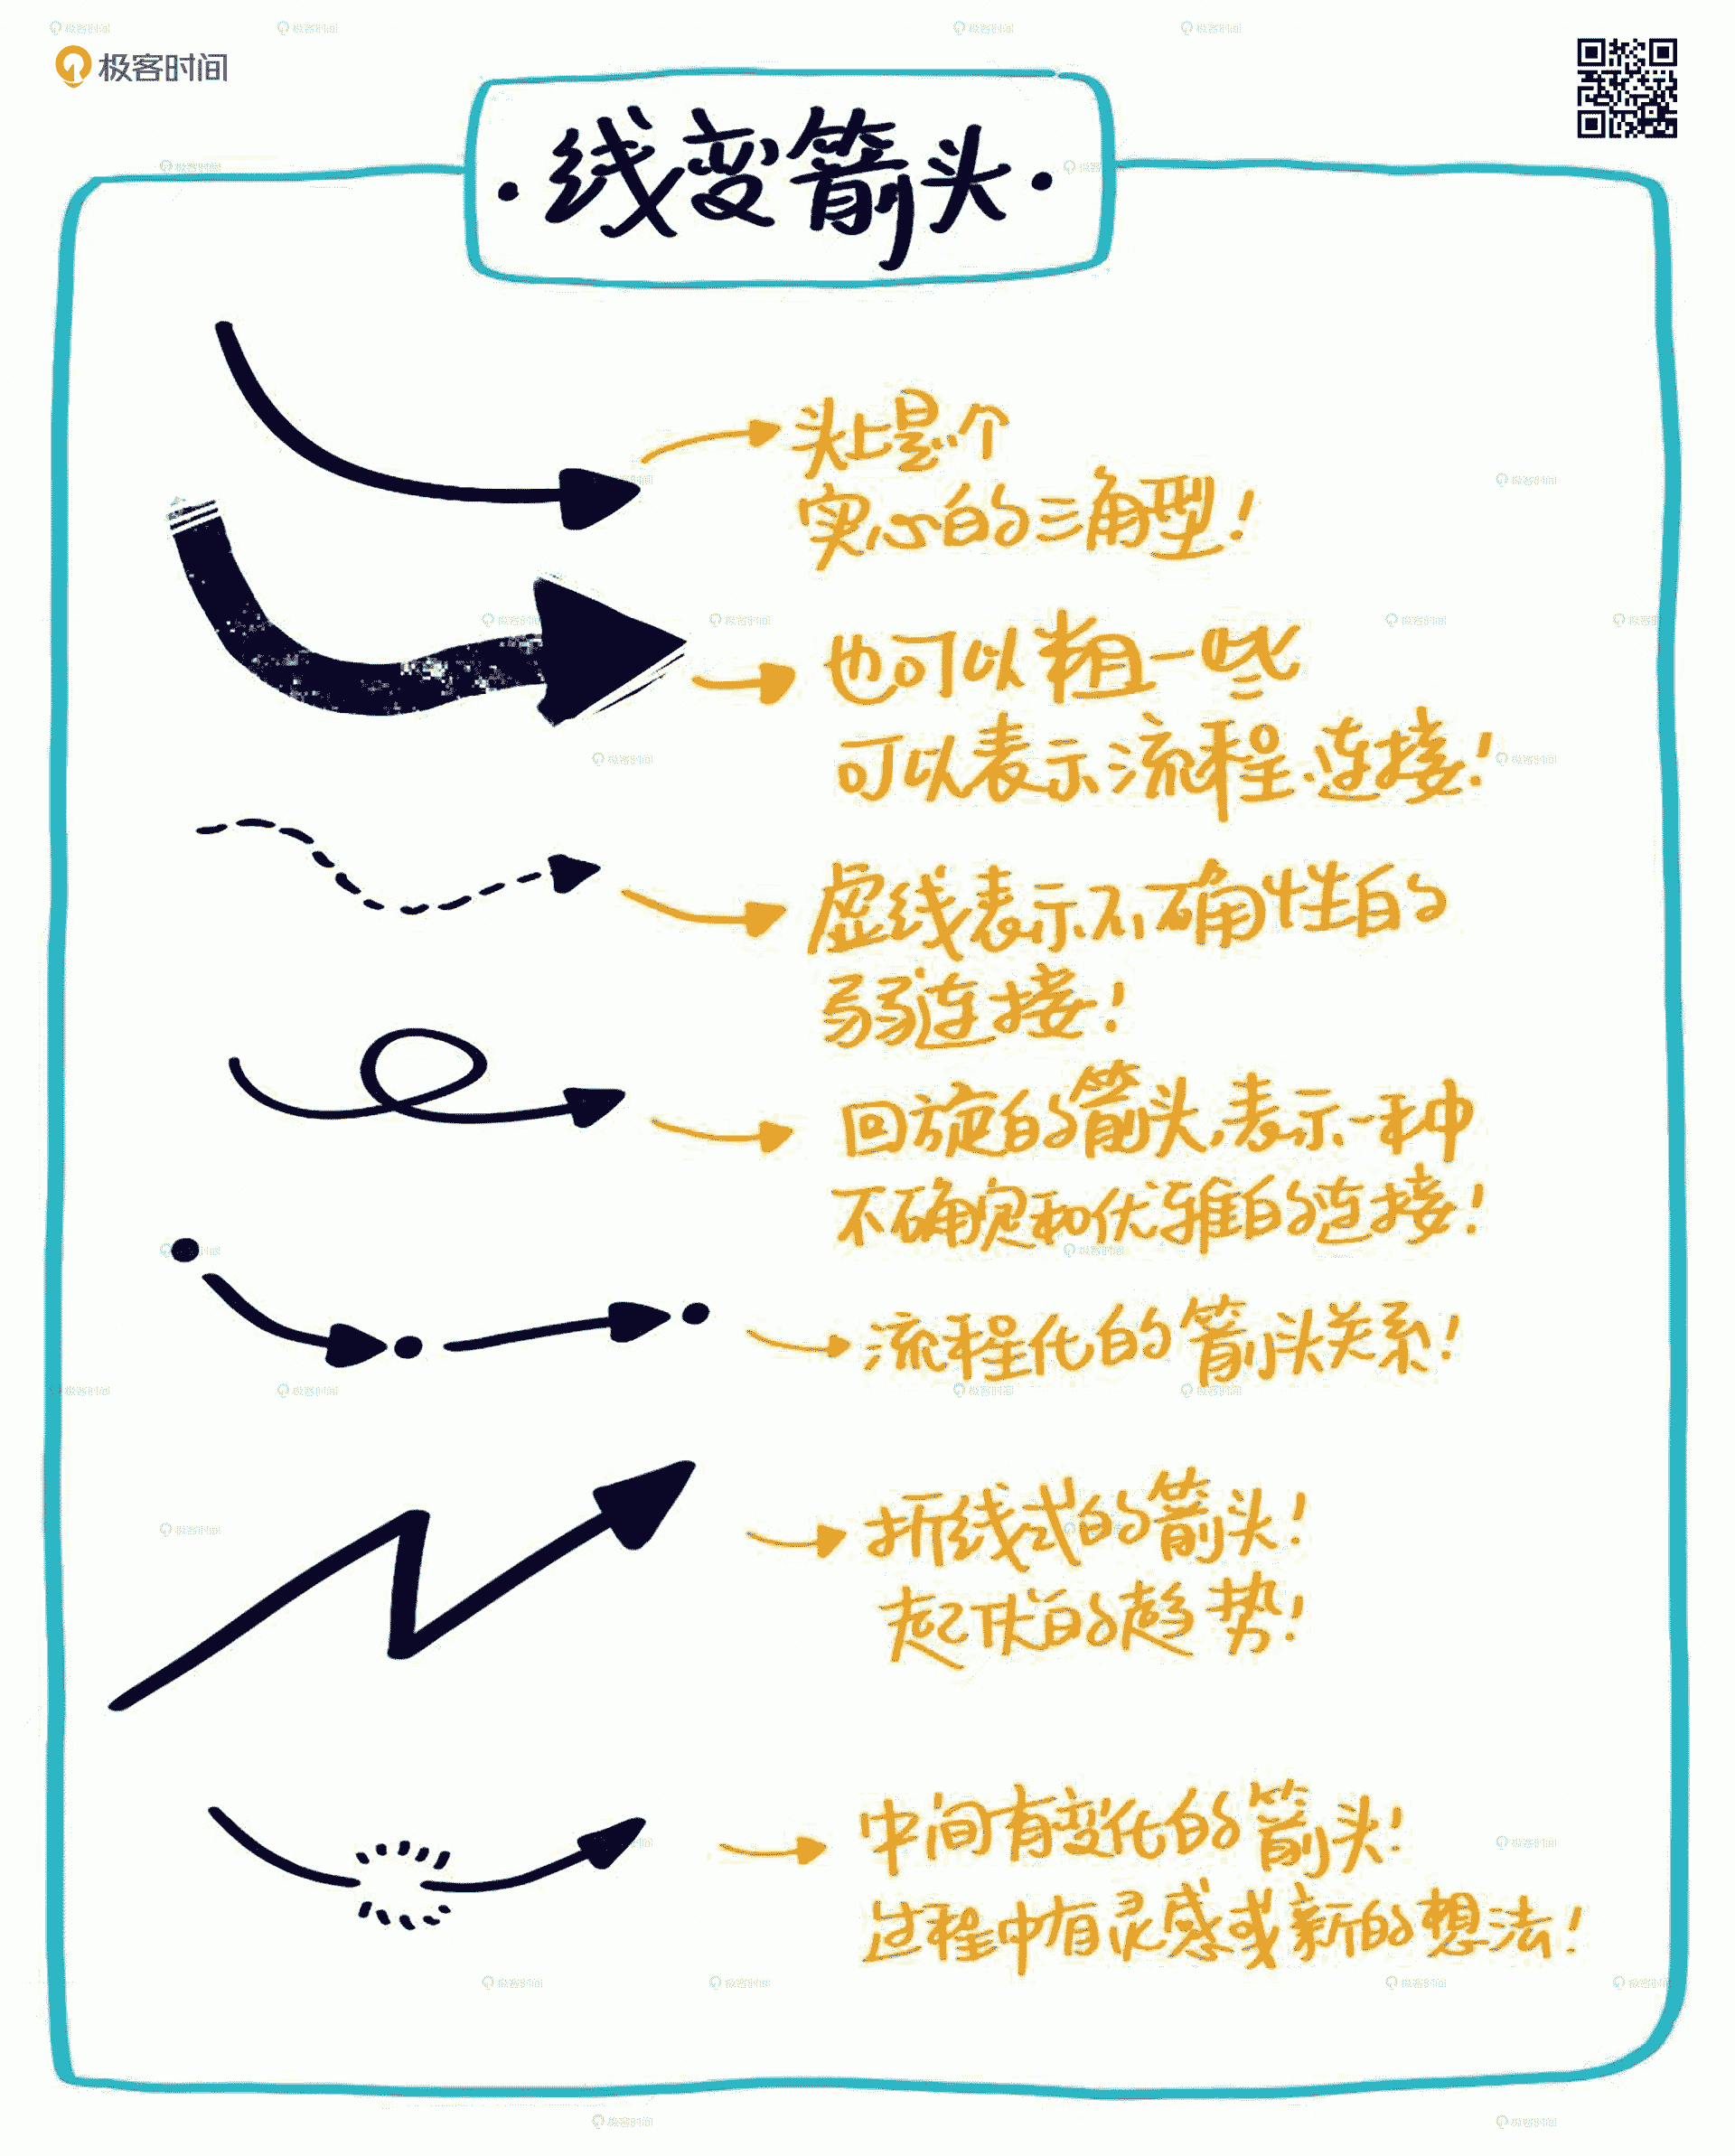 极客时间
·线变箭头·
头上是个
实心的三角型!
也可以粗一些
可以表示流程、连接!
虚线表示不确性的
弱连接!
回旋的箭头,表示一种
不确定和优雅的连接!
流程化的箭头关系!
折线式的箭头!
起伏的趋势!
中间有变化的箭头!
过程中有灵感或新的想法!